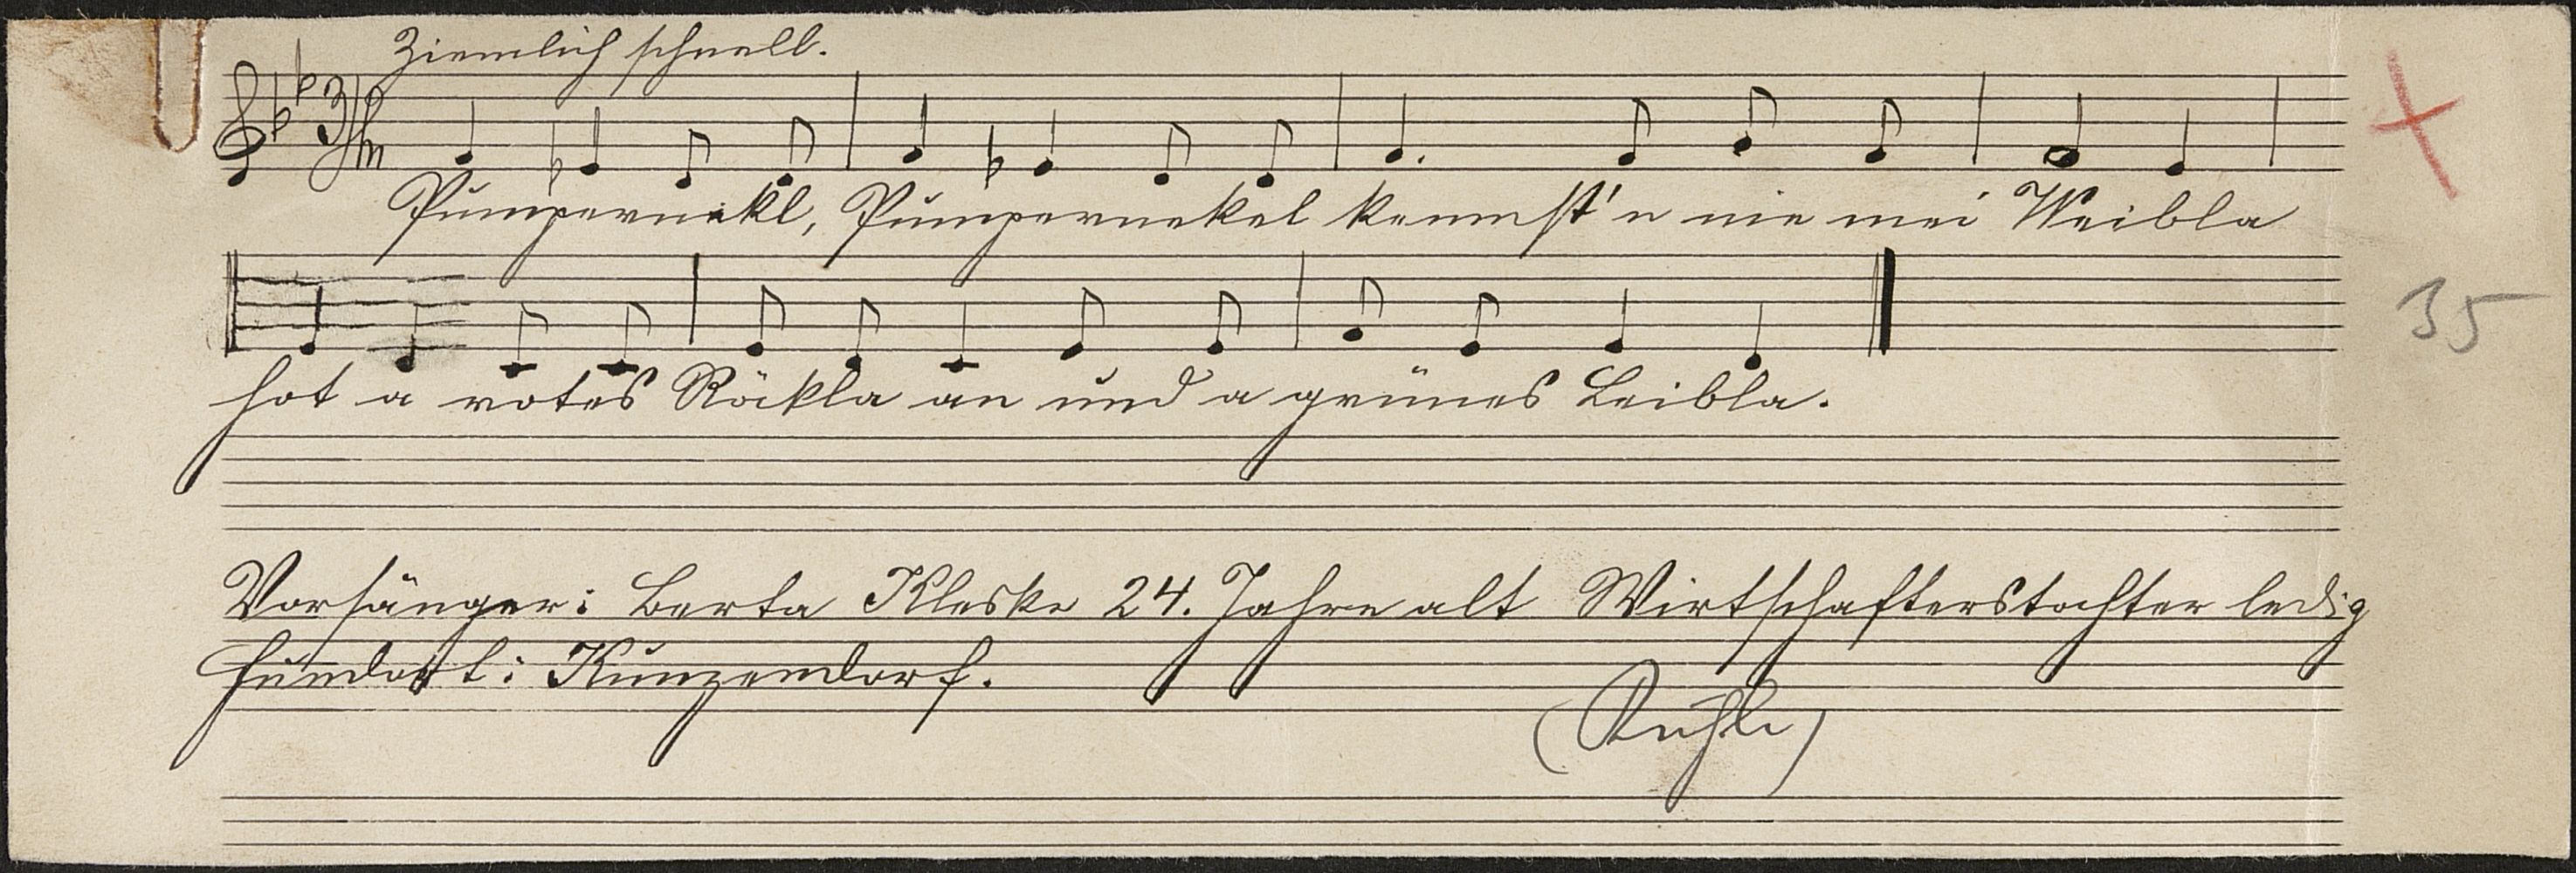 Ziemlich schnell.
3/4
Pumpernikl, Pumpernekel kennst'n nie mei Weibla
35
hot a rotes Röckla an und a grünes Leibla.
Vorsänger: Berta Kleske 24. Jahre alt Wirtschafterstochter ledig
Fundort: Kunzendorf.